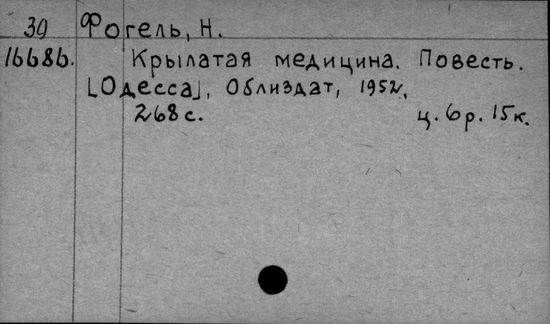 39 Фогель, Н.
16686. Крылатая медицина. Повесть.
[Одесса], Облиздат, 1952.
268 с. ц. 6 р. 15 к.